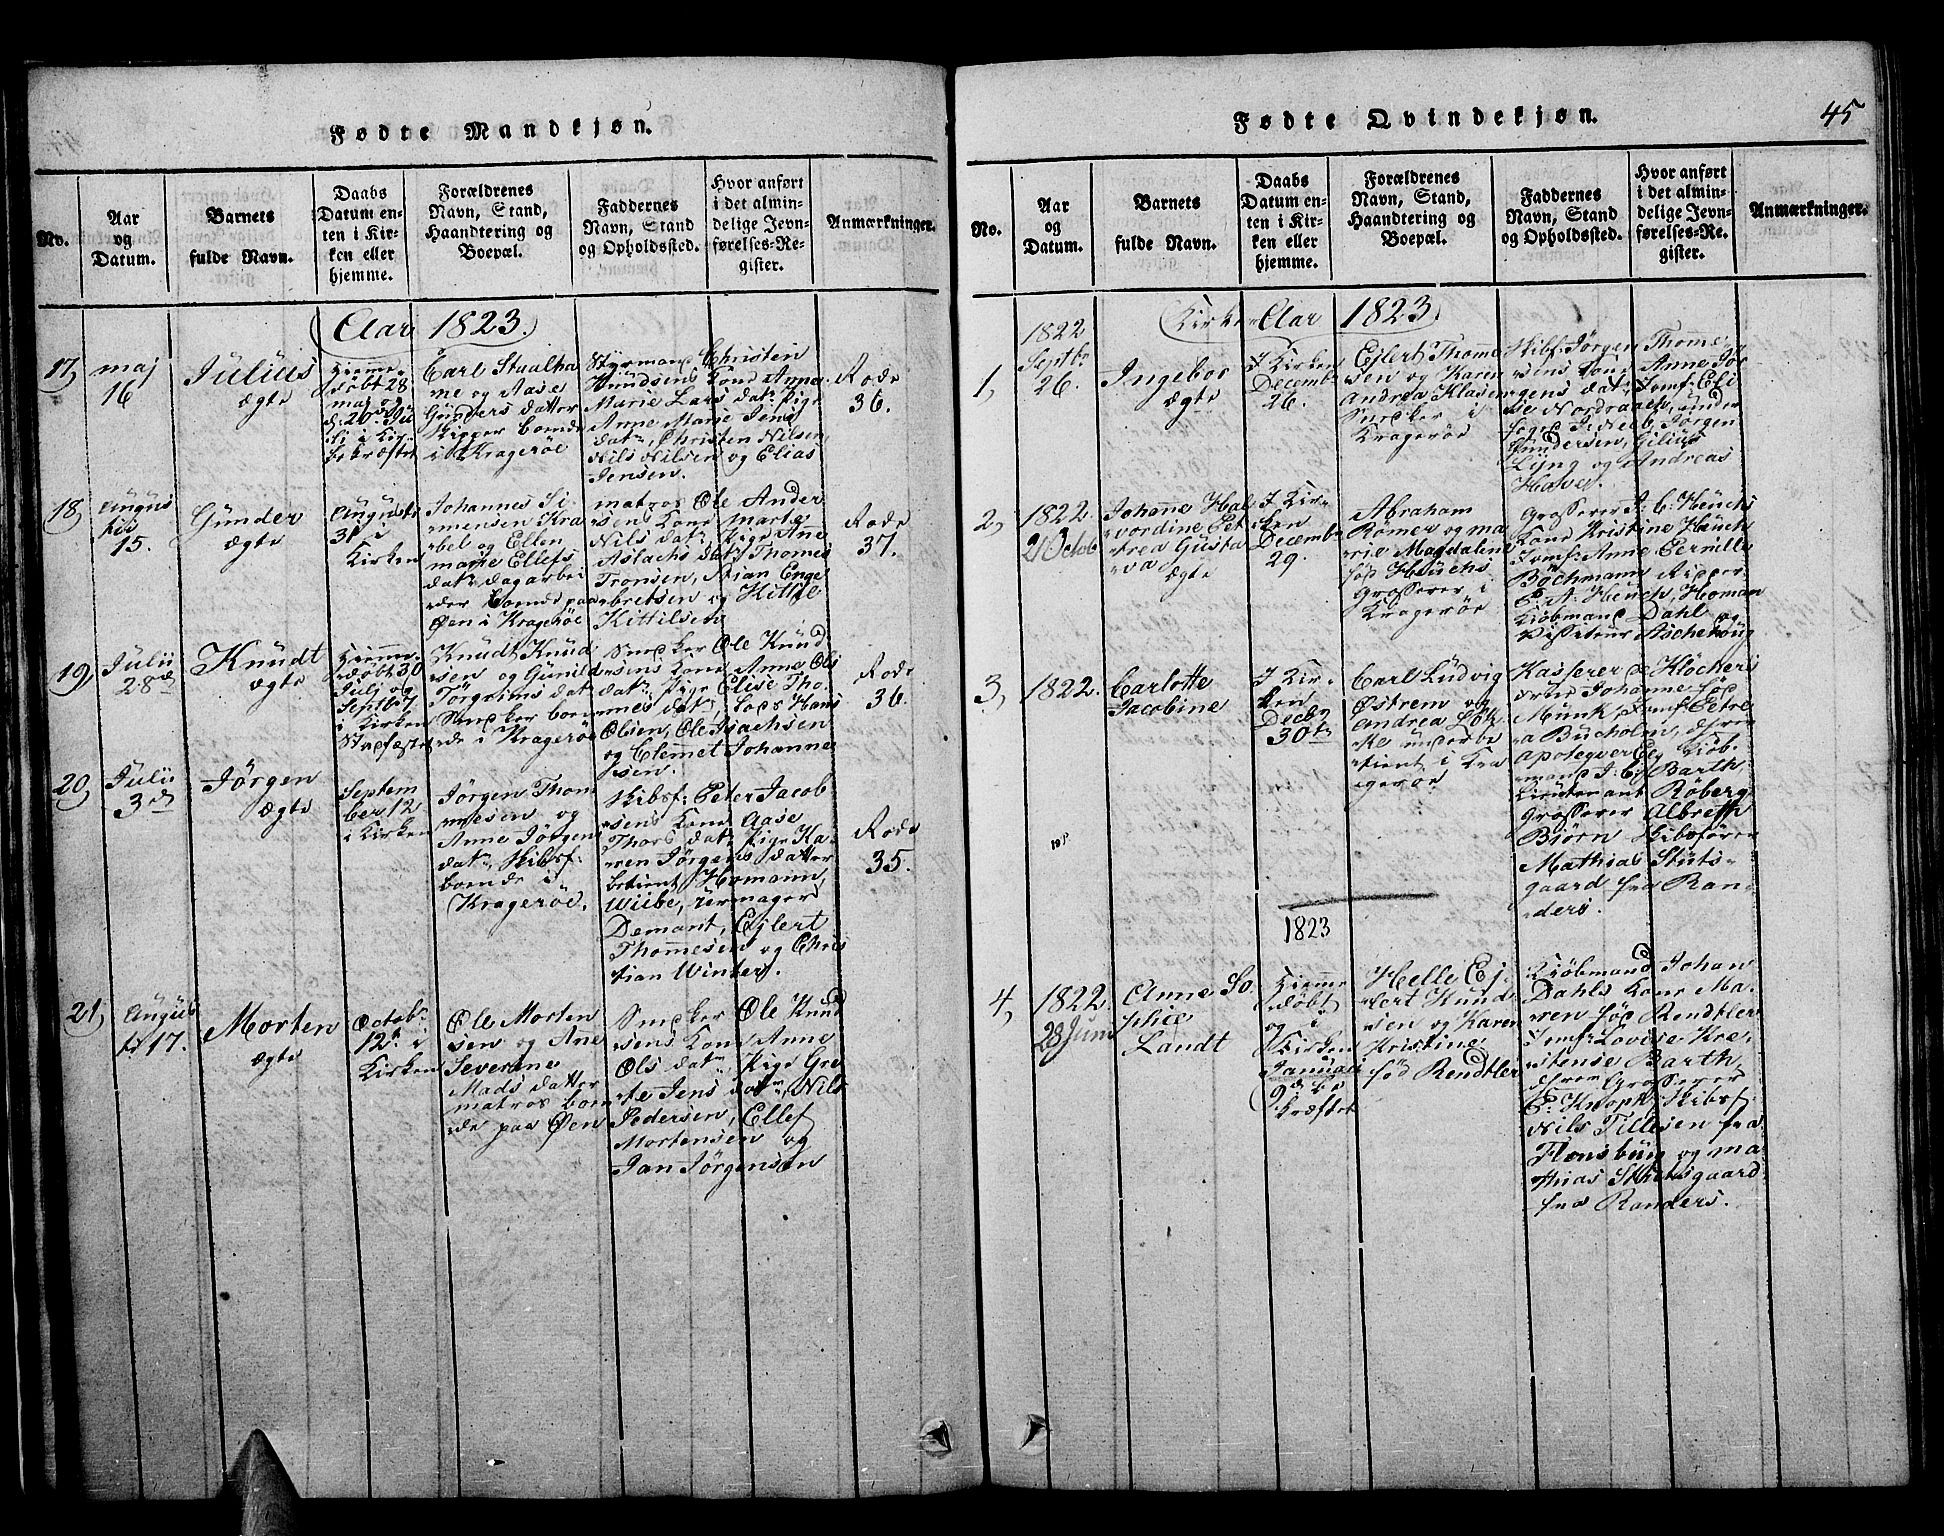 Fødte Mandkjøn.
No.
Aar
og
Datum.
Barnets
fulde Navn.
Daabs
Datum en-
ten i Kir-
ken eller
hjemme.
Forældrenes
Navn, Stand,
Haandtering og
Boepæl.
Faddernes
Navn, Stand
og Opholdssted.
Hvor anført
i det almin-
delige Jevn-
førelses-Re-
gister.
Anmærkninger.
Aar 1823.
17,
maj
16
Julius
ægte
Hjemme-
døbt 28
maj og
i Kir-
bekræftet
Carl Staalha
me og Aase
Gunders datter
Skipper boende
i Kragerøe
Styrmand Christen
Knudsens Kone Anne
Marie Lars dat. Pige
Anne Marie Jens
dat., Christen Nilsen,
Nils Nilsen og Elias
Jensen.
Rode
36.
18,
Augus
15.
Gunder
ægte
Auguste
31 i
Kirken
Johannes Si
mensen Kra
bel og Ellen
marie Ellefs
dat. dagarbei
der boende paa
Øen i Kragerøe
matros Ole Ander
sens Kone Marte
Nils dat. Pige Ane
Aslachs dat. Thomes
Tronsen, Stian Enge
bretsen og Kittil
Kittilsen
Rode
37.
19,
Julii
28de
Knudt
ægte
Hjemme-
døbt 30
Julj og
Septb 7
i Kirken
Stadfæstet
Knudt Knud
sen og Gunild
Törgrims dat.
Snedker boen
de i Kragerøe
Snedker Ole Knud
sens Kone Anne Ols
dat. Pige Elise Tho
mes dat. Lods Hans
Olsen, Ole Isachsen
og Clemmet Johanne
sen.
Rode
36.
20,
Julii
3d
Jörgen
ægte
Septem
ber 12
i Kirken
Jörgen Thom
mesen og
Anne Jörgens
dat. Skibsf:
boende i
Kragerøe,
Skibsf: Peter Jacob
sens Kone Aase
Thors dat. Pige Ka
ren Jörgens datter
betient Homann,
Wiibe, urmager
Demant, Ejlert
Thommesen og Chris
tian Winter.
Rode
35.
21,
Augus
ti 17.
Morten
ægte
Octob.
12 i
Kirken
Ole Morten
sen og Ane
Severine
Mads datter
matros boen
de paa Øen
Snedker Ole Knud
sens Kone Anne
Ols dat. Pige Gre
te Jens dat., Nils
Pedersen, Ellef
Mortensen og
Jan Jörgensen
Fødte Qvindekjøn.
45
No.
Aar
og
Datum.
Barnets
fulde Navn.
Daabs
Datum en-
ten i Kir-
ken eller
hjemme.
Forældrenes
Navn, Stand,
Haandtering og
Boepæl.
Faddernes
Navn, Stand
og Opholdssted.
Hvor anført
i det almin-
delige Jevn-
førelses-Re-
gister.
Anmærkninger.
Kirke Aar 1823
1,
1822
Septbr
26.
Ingebor
ægte
I Kirken
Decemb
26.
Ejlert Thomme
sen og Karen
Andrea Klasen
Snedker i
Kragerøe
Skibsf: Jörgen Thomme
sens Kone Anne Jör
gens dat. Jomf: Eli
se Nordraach, under
foged I: Nelb, Jörgen
Gundersen, Gilius
Lÿng og Andreas
Have.
2,
1822
21 Octob
Johanne Hal
vordine Pet
rea Gusta
va
ægte
I Kir-
ken
Decemb
29.
Abraham
Römer og ma
rie Magdalene
föd Heuchs
Grosserer i
Kragerøe
Grosserer A: C: Heuchs
Kone Kristine Heuch
Jomf: Anne Pernille
Böchmann Ridder
P: A: Heuch, Homan
Kiöbmand Dahl og
Visiteur Aschehoug
3,
1822.
Carlotte
Jacobine
I Kir-
ken
Decbr
30te
Carl Ludvig
Östrem og
Andrea Lök
ke underbe
tient i Kra
geröe
Kasserer Klöckers
Frue Johanne föd
Munk, Jomf: Petre
a Bucholm,
Apoteqver Eeg Kiöb-
mand J: C: Barth,
Lieutenant Röberg
Grosserer Albreth
Biörn Skibsförer
Mathias Stuts-
gaard fra Ran-
ders.
1823
4,
1822.
28 Juni
Anne So
phie
Landt
Hjemme
döbt
og i
Kirken
Januari
9de be
kræftet
Helle Ej-
lert Knud
sen og Karen
Kristine
föd Rendtler
Kiöbmand Johan
Dahls Kone Ma-
ren föd Rendtler
Jomf: Lovise Kre-
stense Barth,
Grosserer
P: Knoph, Skibsf:
Nils Tillesen fra
Flensburg og ma
thias Stutsgaard
fra Randers.